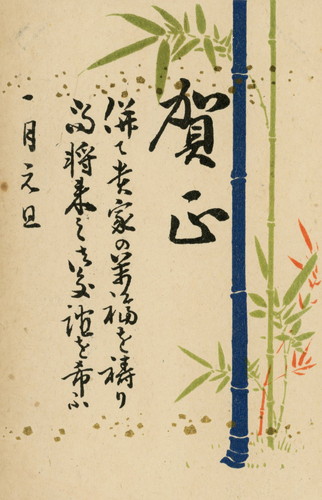 賀正
併て貴家の萬福を祷り
尚将来之御交誼を希ふ
一月元旦